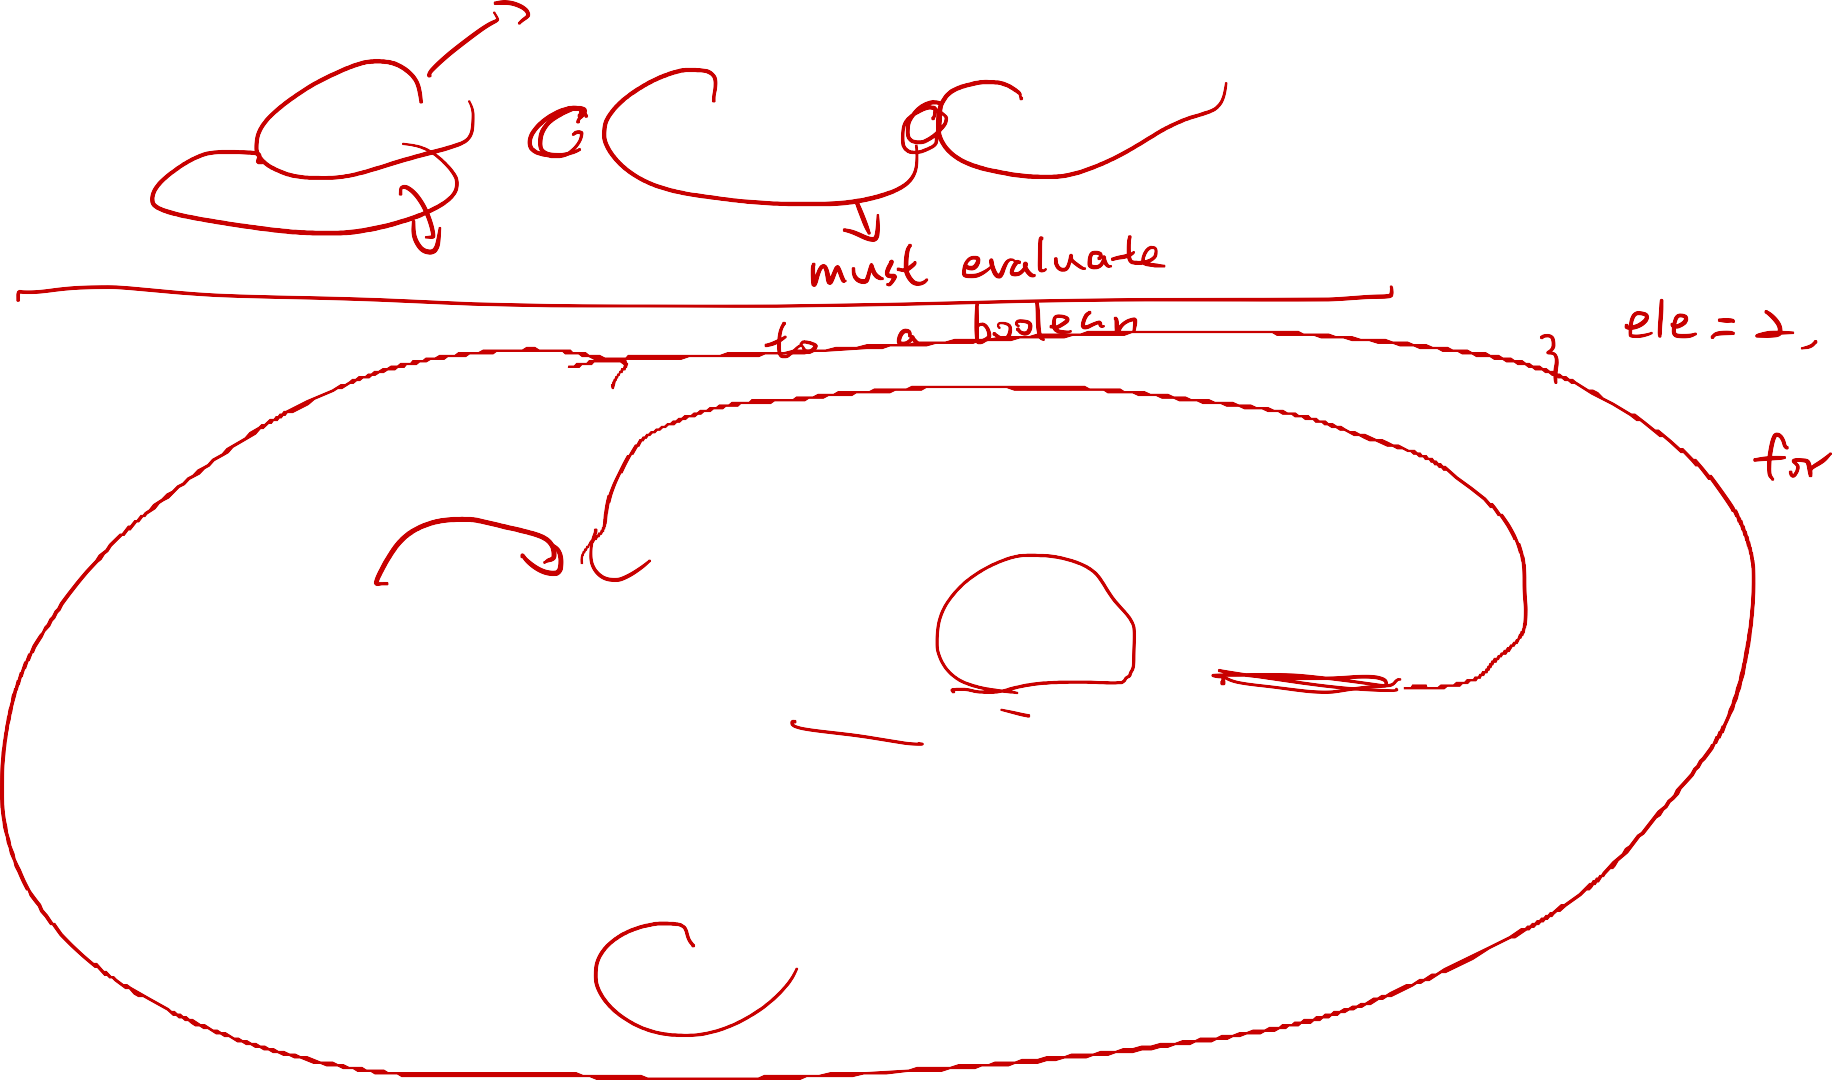 must evaluate
to a boolean
ele = 2,
3
for